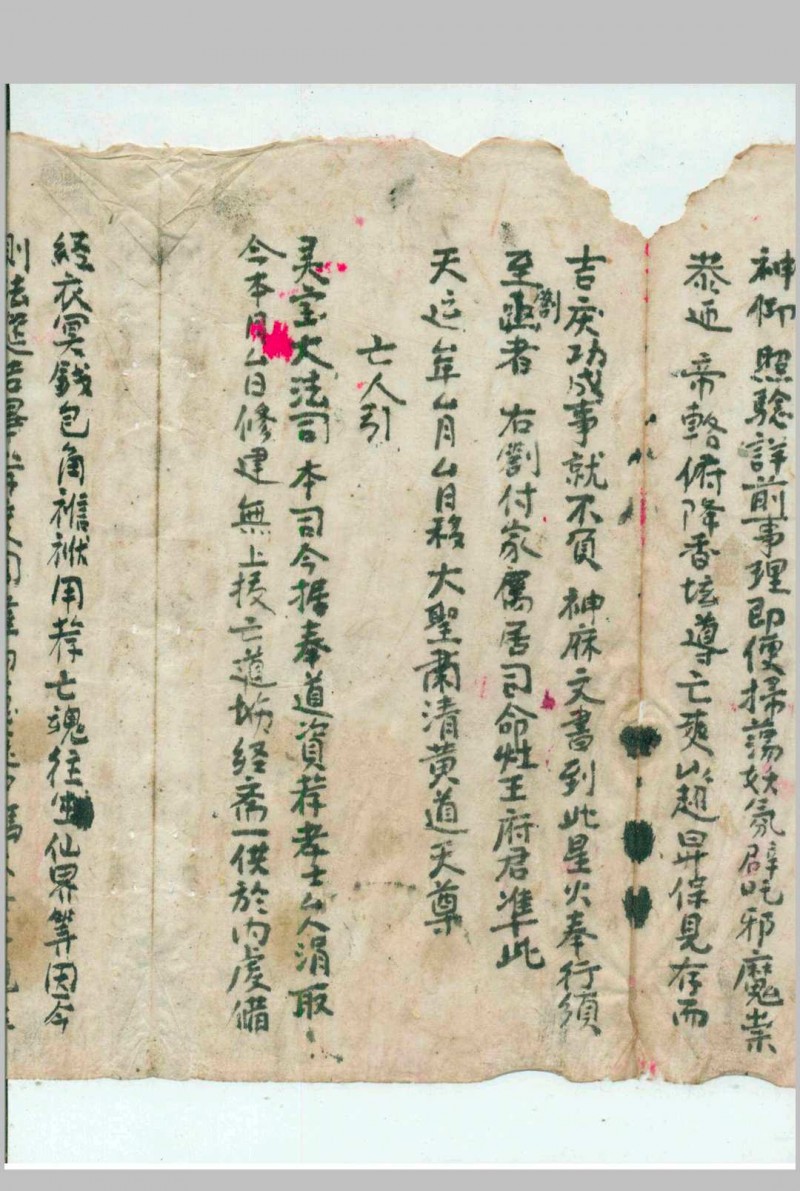 神仰 照驗詳前事理即便掃蕩妖氛辟叱邪魔崇
恭迎 帝輅俯降香坛導亡爽以超昇保見存而
吉庆功成事就不負 神庥文書到此星火奉行須
至劄者 右劄付家属居司命灶王府君準此
天运厶年厶月厶日移 大聖肅清黄道天尊
亡人引
灵宝大法司 本司今据奉道資荐孝士厶人涓取
今本月厶日修建無上拔亡道塲経斋一供於内虔備
経衣冥錢包角襤袱用荐亡魂往生仙界等因今